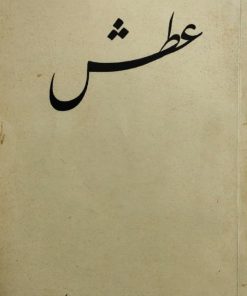 عطش